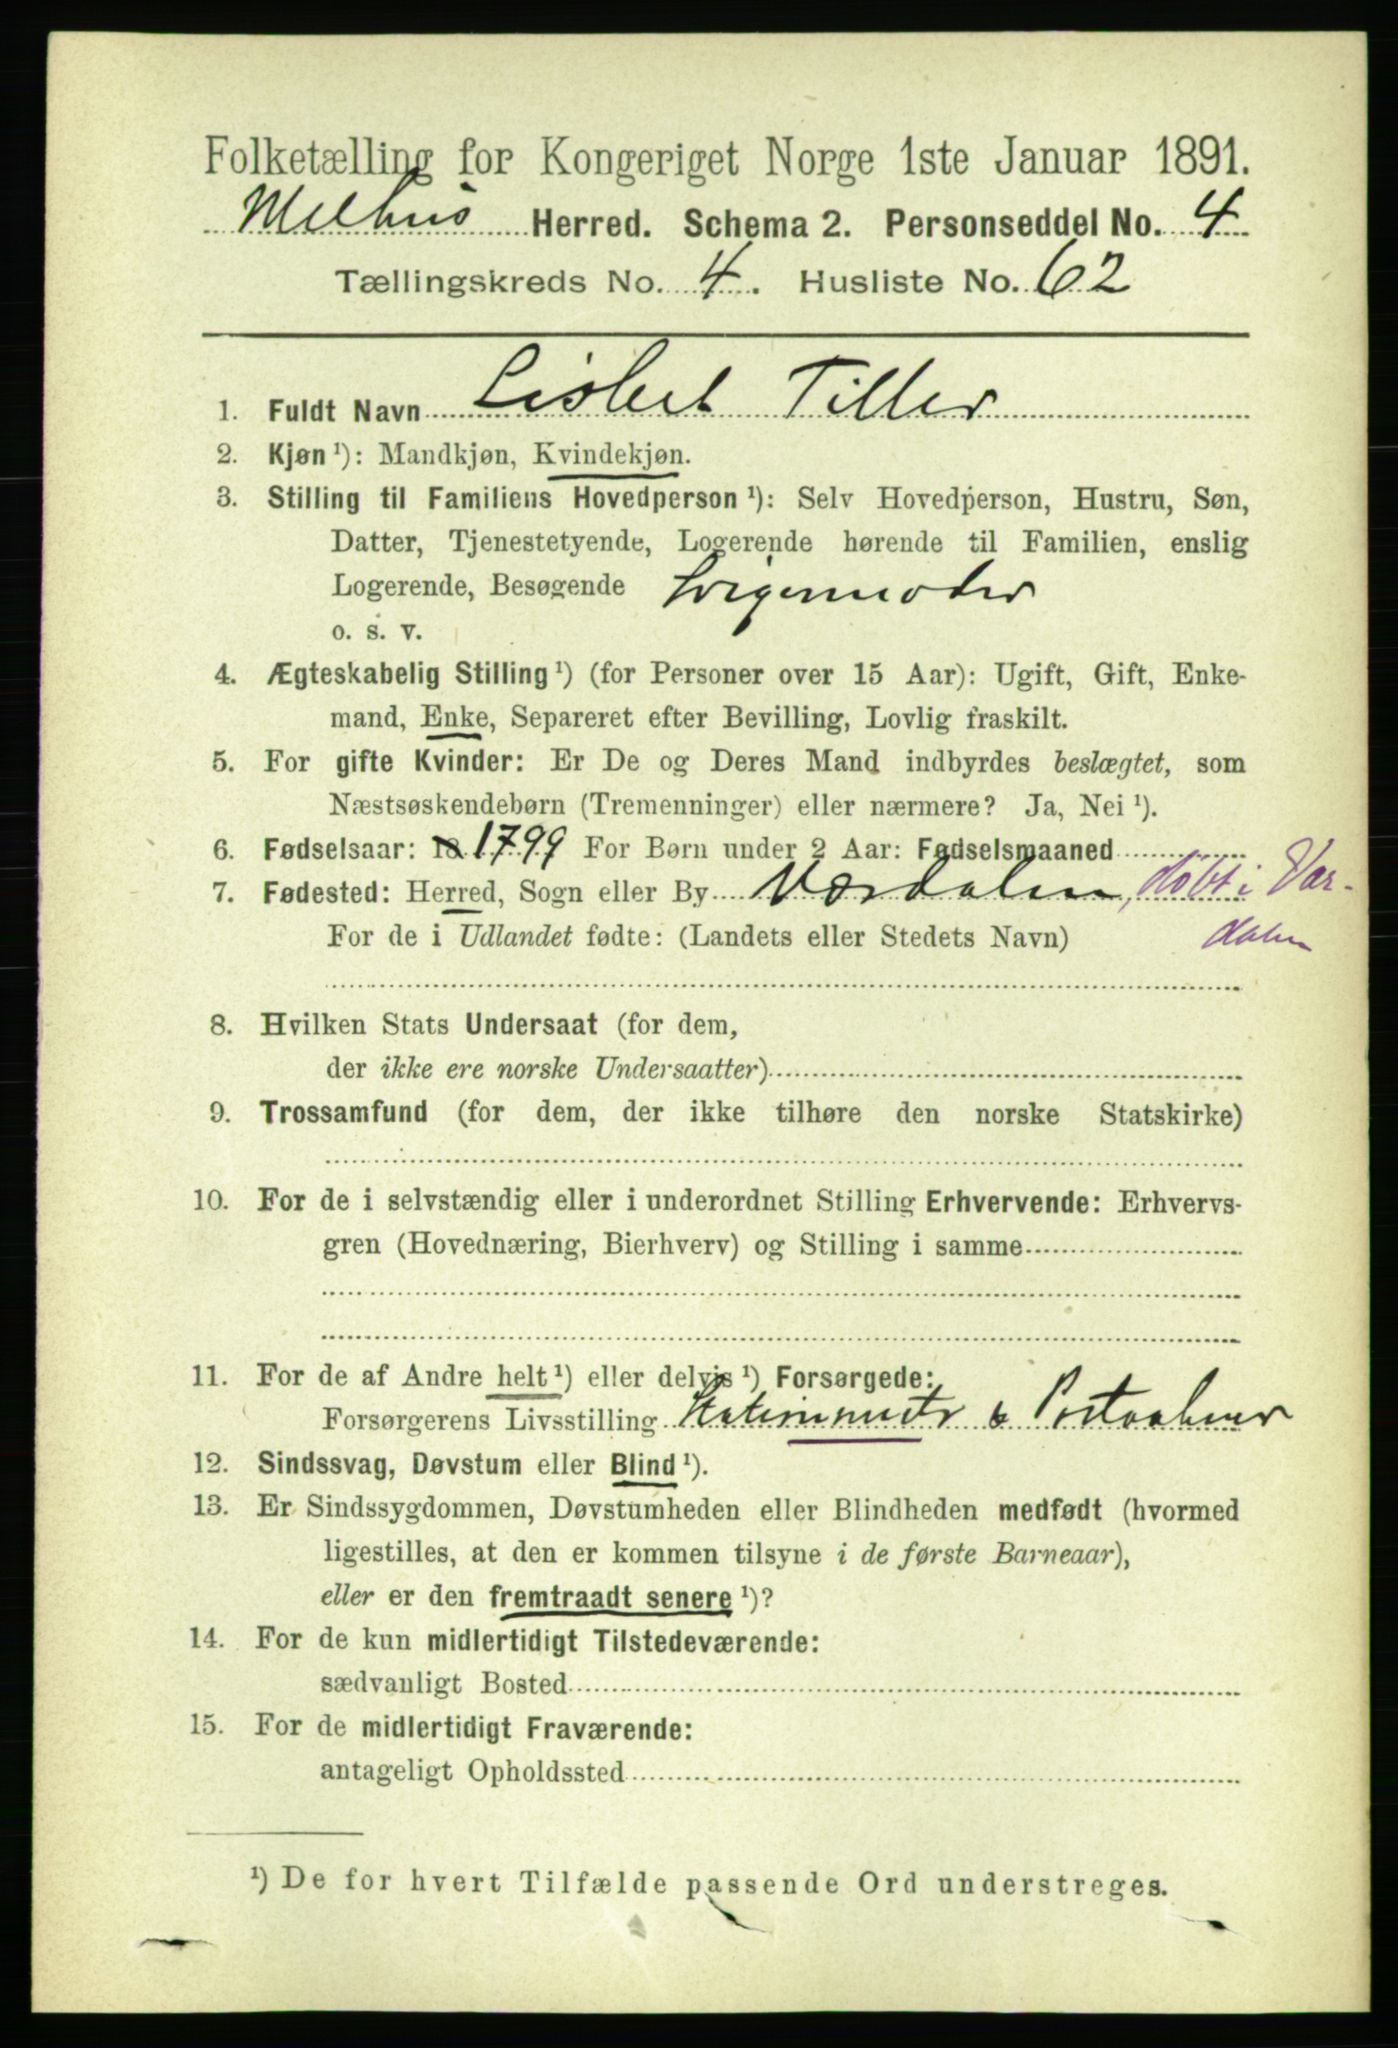 Folketælling for Kongeriget Norge 1ste Januar 1891.
Melhus Herred. Schema 2. Personseddel No. 4
Tællingskreds No. 4. Husliste No. 62
1. Fuldt Navn Lisbet Tiller
2. Kjøn ¹): Mandkjøn, Kvindekjøn.
3. Stilling til Familiens Hovedperson ¹): Selv Hovedperson, Hustru, Søn,
Datter, Tjenestetyende, Logerende hørende til Familien, enslig
Logerende, Besøgende Svigermoder
o. s. v.
4. Ægteskabelig Stilling ¹) (for Personer over 15 Aar): Ugift, Gift, Enke-
mand, Enke, Separeret efter Bevilling, Lovlig fraskilt.
5. For gifte Kvinder: Er De og Deres Mand indbyrdes beslægtet, som
Næstsøskendebørn (Tremenninger) eller nærmere? Ja, Nei ¹).
6. Fødselsaar: 18 1799 For Børn under 2 Aar: Fødselsmaaned
7. Fødested: Herred, Sogn eller By Værdalen, døbt i Vær-
dalen
For de i Udlandet fødte: (Landets eller Stedets Navn)
8. Hvilken Stats Undersaat (for dem,
der ikke ere norske Undersaatter)
9. Trossamfund (for dem, der ikke tilhøre den norske Statskirke)
10. For de i selvstændig eller i underordnet Stilling Erhvervende: Erhvervs-
gren (Hovednæring, Bierhverv) og Stilling i samme
11. For de af Andre helt ¹) eller delvis ¹) Forsørgede:
Forsørgerens Livsstilling & Postaabner
12. Sindssvag, Døvstum eller Blind ¹).
13. Er Sindssygdommen, Døvstumheden eller Blindheden medfødt (hvormed
ligestilles, at den er kommen tilsyne i de første Barneaar),
eller er den fremtraadt senere ¹)?
14. For de kun midlertidigt Tilstedeværende:
sædvanligt Bosted
15. For de midlertidigt Fraværende:
antageligt Opholdssted
¹) De for hvert Tilfælde passende Ord understreges.